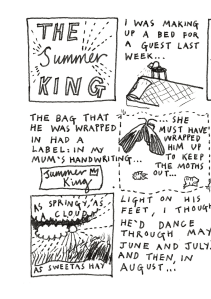 THE
Summer
KING
I WAS MAKING
UP A BED FOR
A GUEST LAST
WEEK...
THE BAG THAT
HE WAS WRAPPED
IN HAD A
LABEL: IN MY
MUM'S HANDWRITING...
Summer
King
... SHE
MUST HAVE
WRAPPED
HIM UP
TO KEEP
THE MOTHS
OUT...
AS SPRINGY AS
CLOUD
AS SWEET AS HAY
LIGHT ON HIS
FEET, I THOUGH
HE'D DANCE
THROUGH MAY
JUNE AND JULY.
AND THEN, IN
AUGUST...